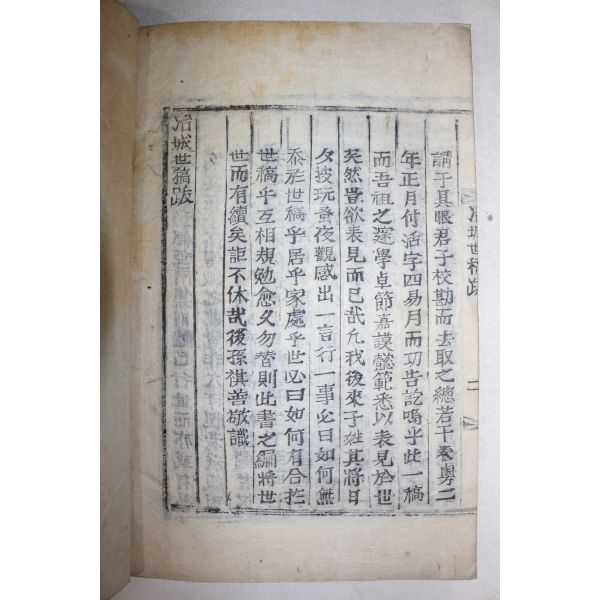 冶城世稿跋 二
請于具眼君子校勘而去取之總若干卷粤二
年正月付活字四易月而功告訖嗚乎此一稿
而吾祖之邃學卓節嘉謨懿範悉以表見於世
矣然豈欲表見而已哉凡我後來子姓其將日
夕披玩蚤夜觀感出一言行一事必曰如何無
忝於世稿乎居乎家處乎世必曰如何有合於
世稿乎互相規勉愈久勿替則此耆之編將世
世而有續矣詎不休哉後孫祺善敬識
冶城世稿跋